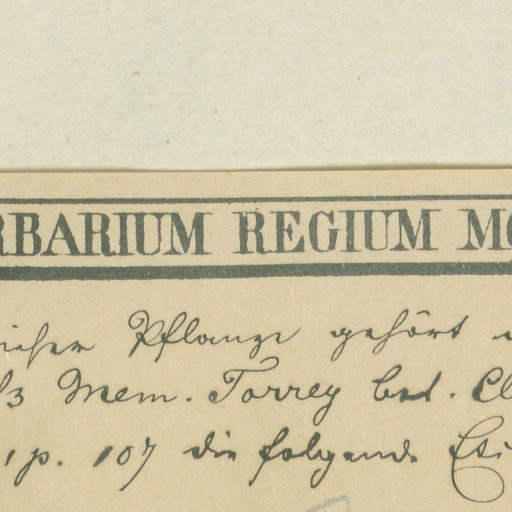 RBARIUM REGIUM MO
Pflanze gehört
Mem. Torrey bot. Cl
p. 107 die folgende Eti